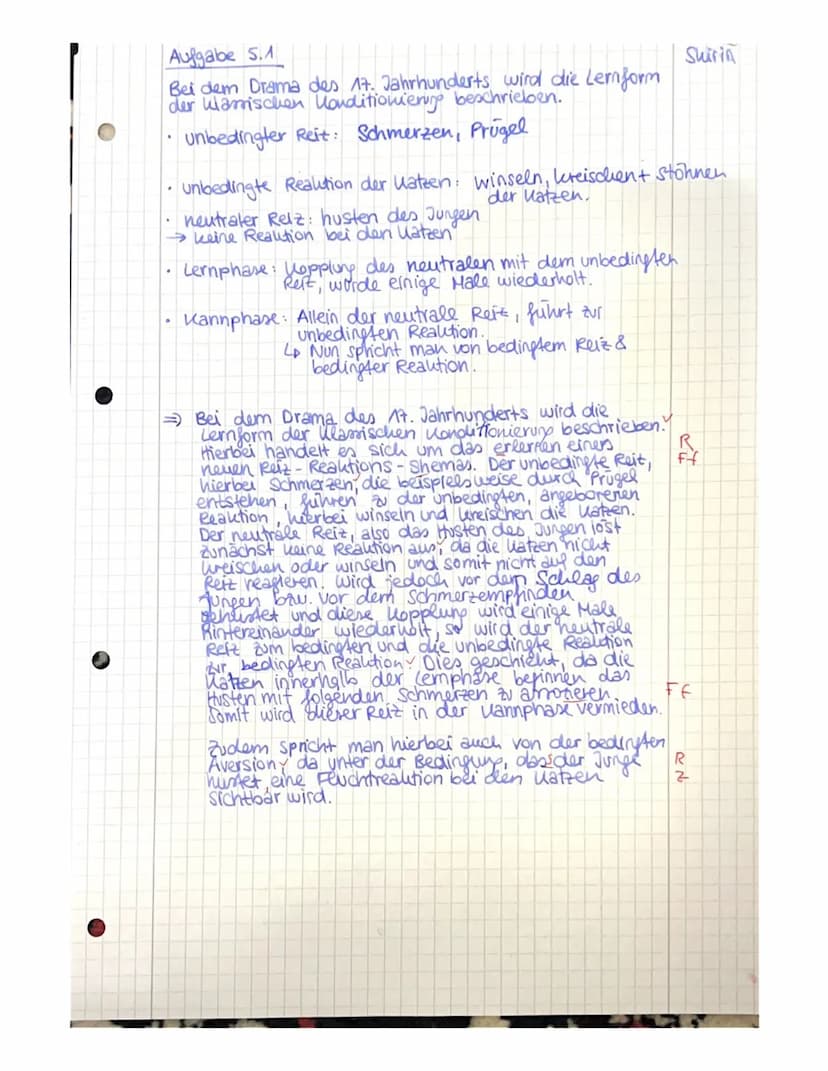 Aufgabe 5.1 Shirin
Bei dem Drama des 17. Jahrhunderts wird die Lernform
der klassischen Konditionierung beschrieben.
• unbedingter Reit: Schmerzen, Prügel
• unbedingte Reaktion der Katzen: winseln, kreischen + stöhnen
der Katzen.
• neutraler Reiz: husten des Jungen
→ keine Reaktion bei den Katzen
• Lernphase: Kopplung des neutralen mit dem unbedingten
Reit, wurde einige Male wiederholt.
• Kannphase: Allein der neutrale Reit, führt zur
unbedingten Reaktion.
↳ Nun spricht man von bedingtem Reiz &
bedingter Reaktion.
⇒ Bei dem Drama des 17. Jahrhunderts wird die
Lernform der klassischen Konditionierung beschrieben.
Hierbei handelt es sich um das erlernen eines R
neuen Reiz-Reaktions-Shemas. Der unbedingte Reit, Ff
hierbei Schmerzen, die beispielsweise durch Prügel
entstehen, führen zu der unbedingten, angeborenen
Reaktion, hierbei winseln und kreischen die Katzen.
Der neutrale Reiz, also das Husten des Jungen löst
zunächst keine Reaktion aus, da die Katzen nicht
kreischen oder winseln und somit nicht auf den
Reiz reagieren. Wird jedoch vor dem Schlag des
Jungen bzw. vor dem Schmerzempfinden
gehustet und diese Kopplung wird einige Male
Hintereinander wiederholt, so wird der neutrale
Reiz zum bedingten und die unbedingte Reaktion
zur bedingten Reaktion. Dies geschieht, da die
Katzen innerhalb der Lernphase beginnen das
Husten mit folgenden Schmerzen zu Ff
Somit wird dieser Reiz in der Kannphase vermieden.
Zudem spricht man hierbei auch von der bedingten
Aversion, da unter der Bedingung, dass der Junge R
hustet, eine Fluchtreaktion bei den Katzen Z
sichtbar wird.